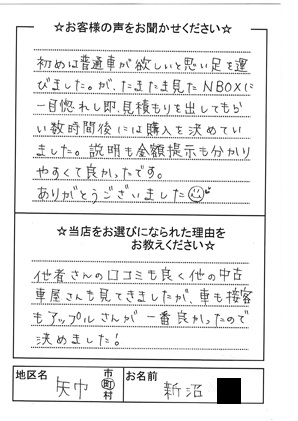 ☆お客様の声をお聞かせください☆
初めは普通車が欲しいと思い足を運
びました。が、たまたま見たNBOXに
一目惚れし即、見積もりを出してもら
い数時間後には購入を決めてい
ました。説明も金額提示も分かり
やすくて良かったです。
ありがとうございました
☆当店をお選びになられた理由を
お教えください☆
他者さんの口コミも良く他の中古
車屋さんも見てきましたが、車も接客
もアップルさんが一番良かったので
決めました!
地区名 矢巾 市町村 お名前 新沼